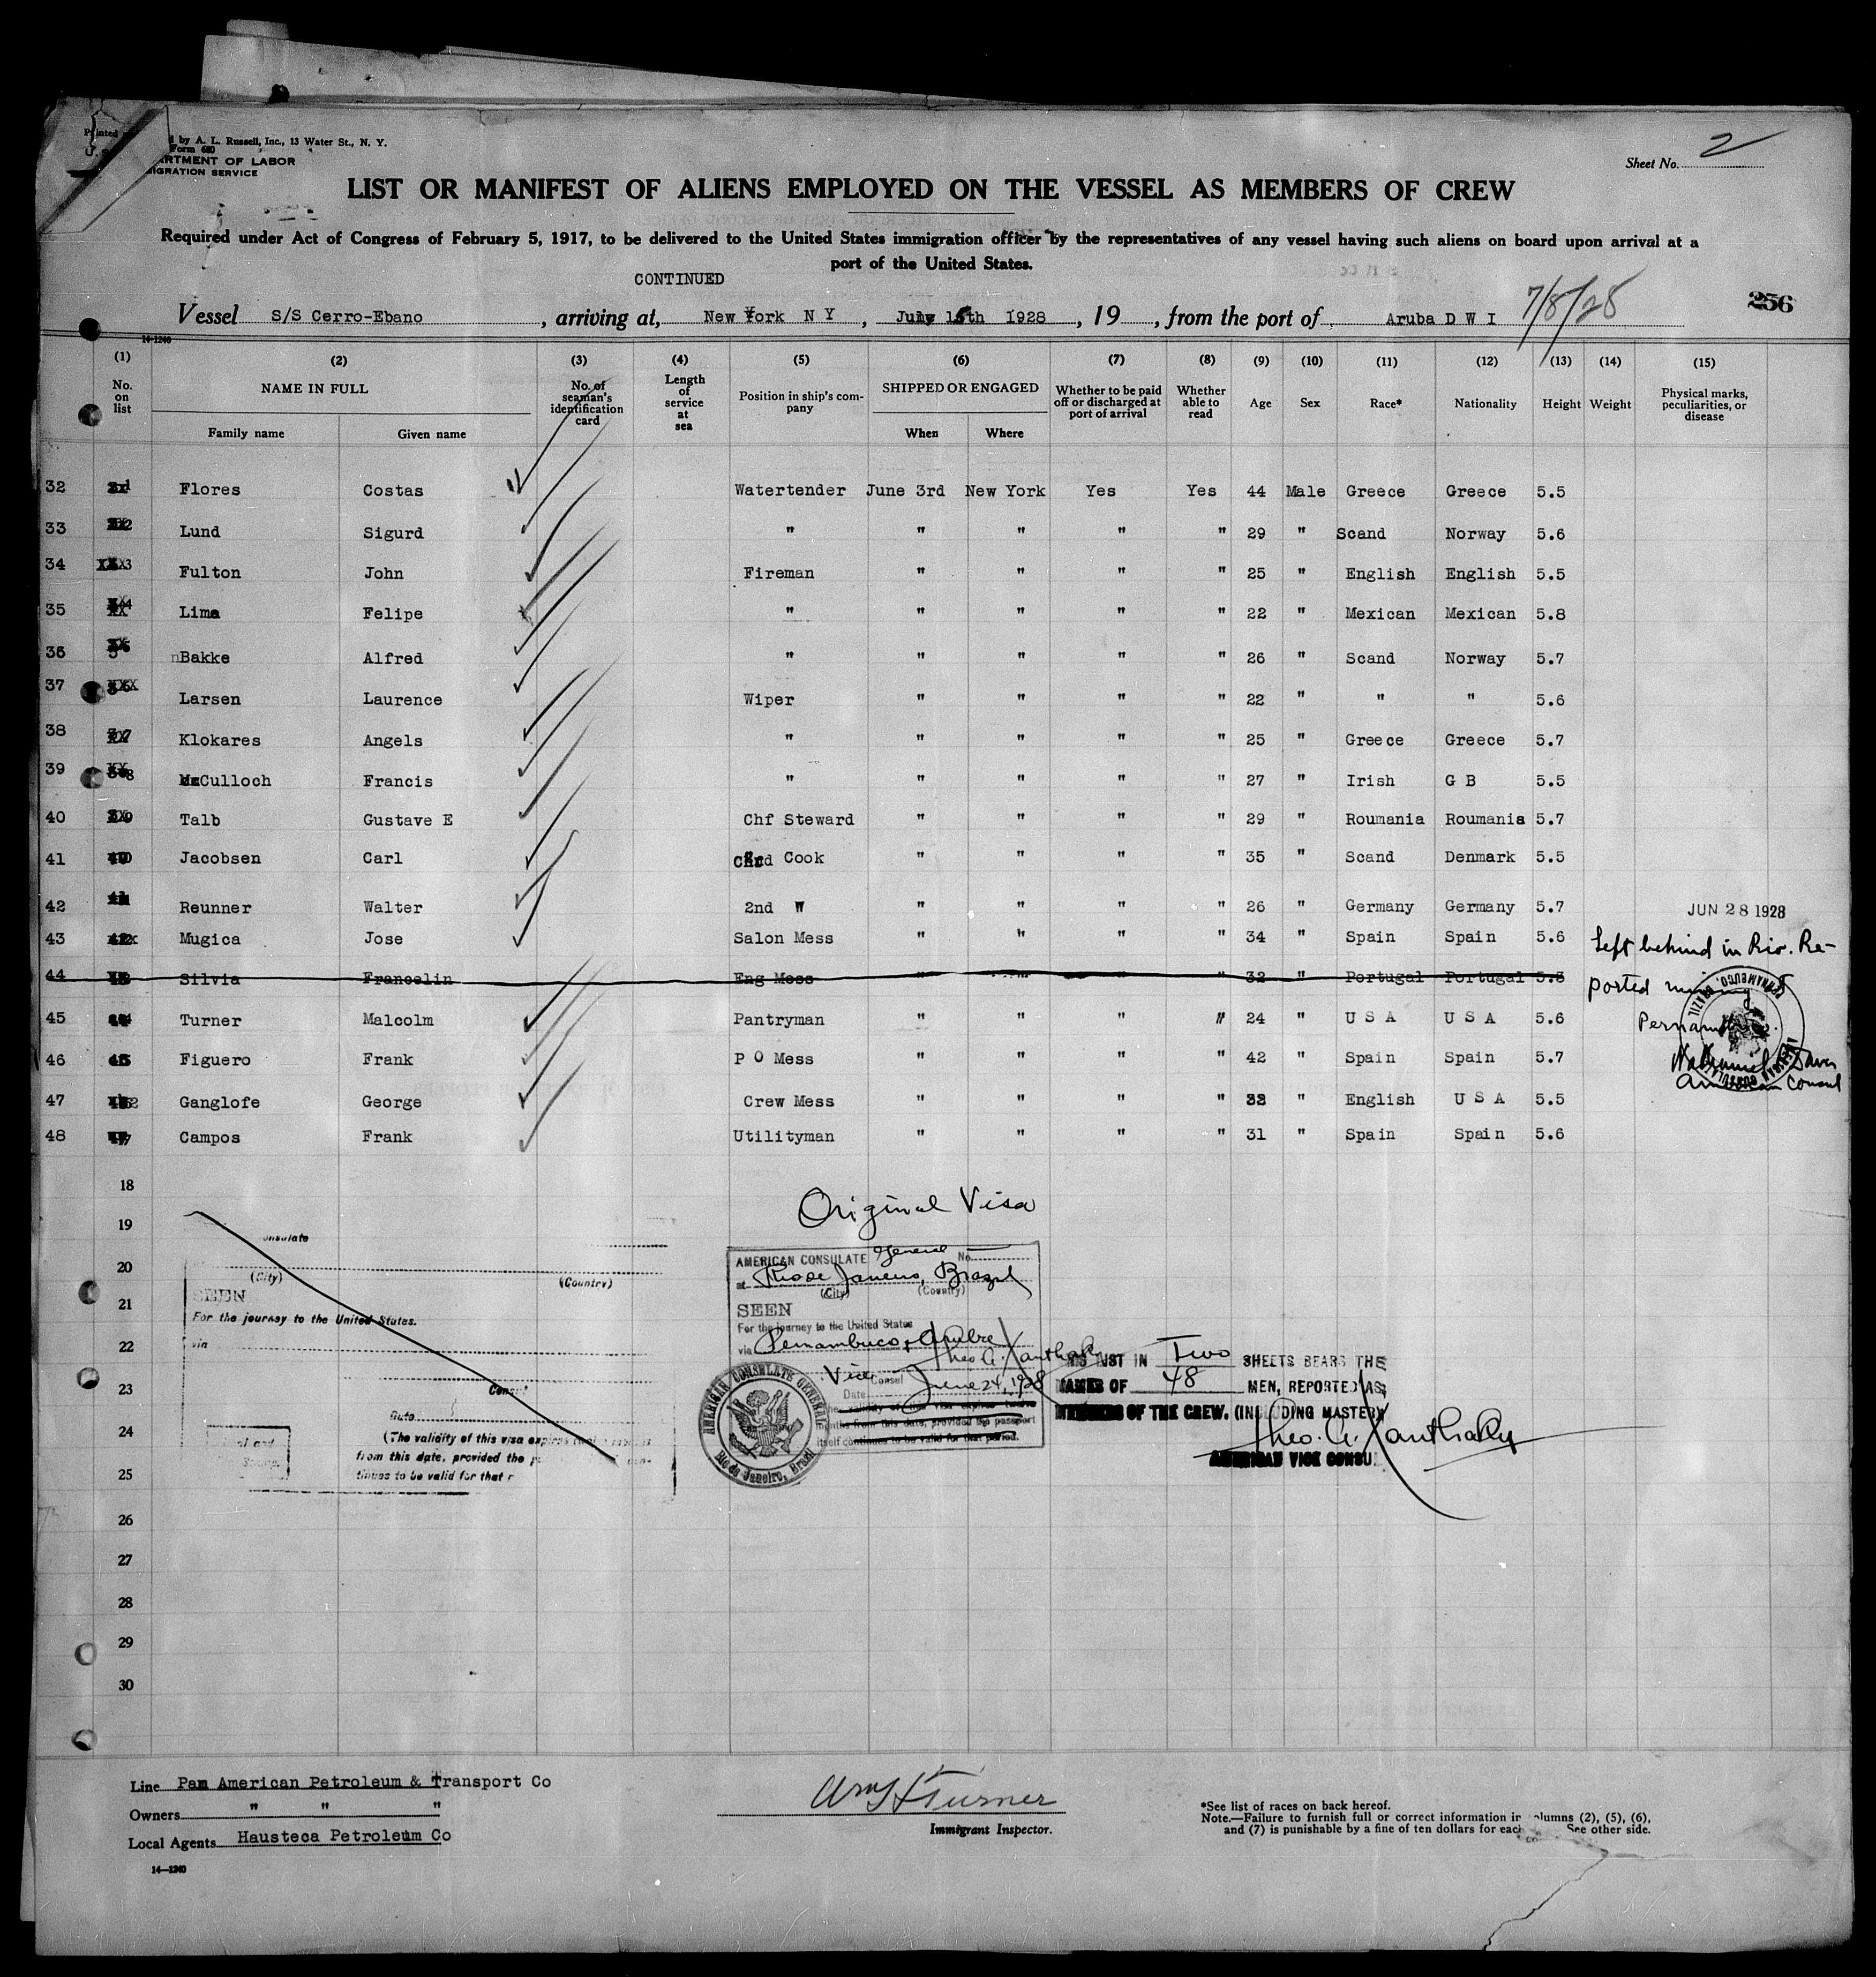 Sheet No. 2
by A. L. Russell, Inc., 13 Water St., N. Y.
Form 680
DEPARTMENT OF LABOR
IMMIGRATION SERVICE
LIST OR MANIFEST OF ALIENS EMPLOYED ON THE VESSEL AS MEMBERS OF CREW
Required under Act of Congress of February 5, 1917, to be delivered to the United States immigration officer by the representatives of any vessel having such aliens on board upon arrival at a
port of the United States.
CONTINUED
Vessel S/S Cerro-Ebano, arriving at, New York N Y, July 1928, 19, from the port of Aruba D W I 7/8/28 256
14-1240
(1) (2) (3) (4) (5) (6) (7) (8) (9) (10) (11) (12) (13) (14) (15)
No. on list NAME IN FULL No. of seaman's identification card Length of service at sea Position in ship's company SHIPPED OR ENGAGED Whether to be paid off or discharged at port of arrival Whether able to read Age Sex Race* Nationality Height Weight Physical marks, peculiarities, or disease
Family name Given name When Where
32 Flores Costas Watertender June 3rd New York Yes Yes 44 Male Greece Greece 5.5
33 Lund Sigurd " " " " " 29 " Scand Norway 5.6
34 Fulton John Fireman " " " " 25 " English English 5.5
35 Lima Felipe " " " " " 22 " Mexican Mexican 5.8
36 Bakke Alfred " " " " " 26 " Scand Norway 5.7
37 Larsen Laurence Wiper " " " " 22 " " " 5.6
38 Klokares Angels " " " " " 25 " Greece Greece 5.7
39 McCulloch Francis " " " " " 27 " Irish G B 5.5
40 Talb Gustave E Chf Steward " " " " 29 " Roumania Roumania 5.7
41 Jacobsen Carl Cook " " " " 35 " Scand Denmark 5.5
42 Reunner Walter 2nd " " " " 26 " Germany Germany 5.7
JUN 28 1928
43 Mugica Jose Salon Mess " " " " 34 " Spain Spain 5.6
Left behind in Rio. Re-
44 Silvia Francelin Eng Mess " " " " 32 " Portugal Portugal 5.8
ported missing
45 Turner Malcolm Pantryman " " " " 24 " U S A U S A 5.6
46 Figuero Frank P O Mess " " " " 42 " Spain Spain 5.7
American Consul
47 Ganglofe George Crew Mess " " " " " English U S A 5.5
48 Campos Frank Utilityman " " " " 31 " Spain Spain 5.6
18
19
20
21
22
23
24
25
26
27
28
29
30
(City) (Country)
SEEN
For the journey to the United States.
via
Date
(The validity of this visa expires
from this date, provided the
tinues to be valid for that
Original Visa
AMERICAN CONSULATE General No.
at Rio de Janeiro, Brazil
(City) (Country)
SEEN
For the journey to the United States
via Pernambuco
Theo. A. Xanthaky
Vice Consul
Date June 24, 1928
The validity of this visa expires twelve
months from this date, provided the passport
itself continues to be valid for that period.
AMERICAN CONSULATE GENERAL
Rio de Janeiro, Brazil
THIS LIST IN Two SHEETS BEARS THE
NAMES OF 48 MEN, REPORTED AS
MEMBERS OF THE CREW. (INCLUDING MASTER)
Theo. A. Xanthaky
AMERICAN VICE CONSUL
Line Pan American Petroleum & Transport Co
Owners " " "
Local Agents Hausteca Petroleum Co
14—1240
Turner
Immigrant Inspector.
*See list of races on back hereof.
Note.—Failure to furnish full or correct information in columns (2), (5), (6),
and (7) is punishable by a fine of ten dollars for each See other side.